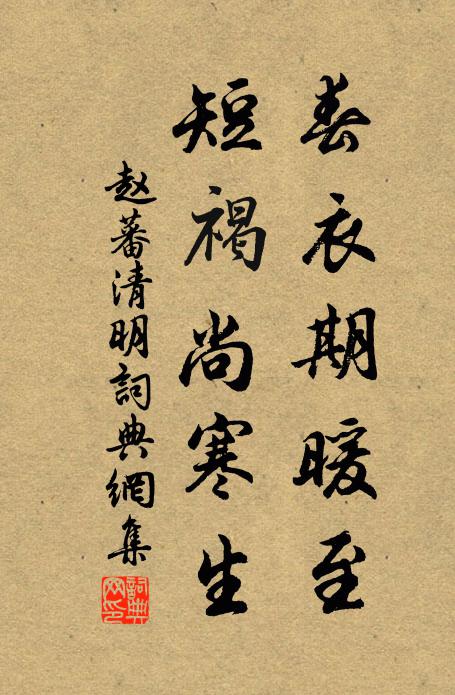 春衣期暖至
短褐尚寒生
赵蕃清明詞典網集
詞典网印